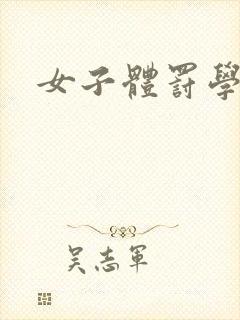 女子體罰學
吳志軍